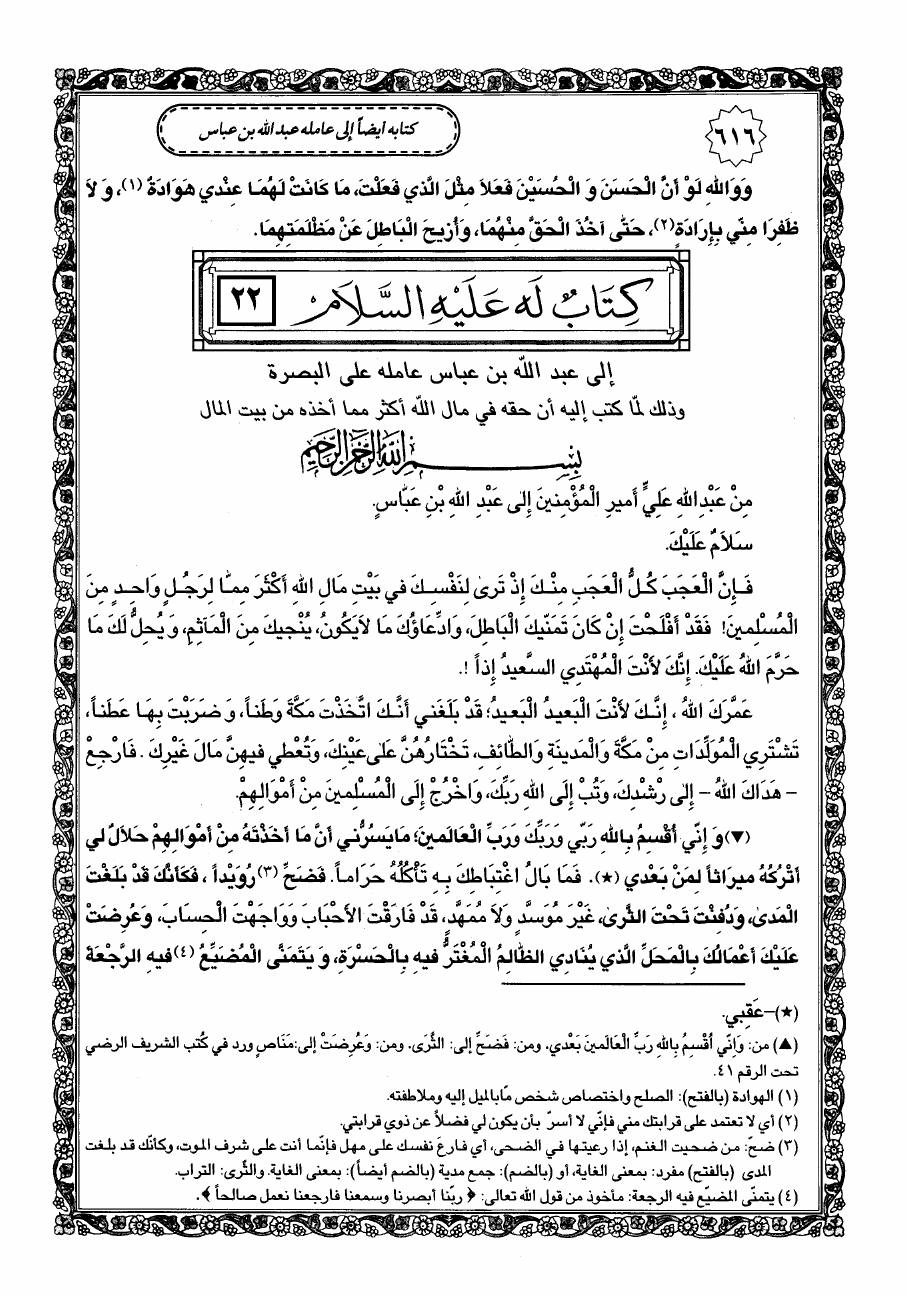 كتابه أيضاً إلى عامله عبد الله بن عباس
٦١٦
وَوَاللهِ لَوْ أَنَّ الْحَسَنَ وَ الْحُسَيْنَ فَعَلاَ مِثْلَ الَّذي فَعَلْتَ، مَا كَانَتْ لَهُمَا عِنْدي هَوَادَةٌ (١)، وَ لاَ
ظَفِرَا مِنّي بِإِرَادَةٍ (٢)، حَتَّى آخُذَ الْحَقَّ مِنْهُمَا، وَأُزيحَ الْبَاطِلَ عَنْ مَظْلَمَتِهِمَا.
كِتَابٌ لَه عَلَيْهِ السَّلاَم
٢٢
إلى عبد اللّه بن عباس عامله على البصرة
وذلك لمّا كتب إليه أن حقه في مال اللّه أكثر مما أخذه من بيت المال
بِسْمِ اللهِ الرَّحْمنِ الرَّحيمِ
مِنْ عَبْدِاللهِ عَلِيٍّ أَميرِ الْمُؤْمِنينَ إِلى عَبْدِ اللهِ بْنِ عَبَّاسٍ.
سَلاَمٌ عَلَيْكَ.
فَإِنَّ الْعَجَبَ كُلُّ الْعَجَبِ مِنْكَ إِذْ تَرىٰ لِنَفْسِكَ في بَيْتِ مَالِ اللهِ أَكْثَرَ مِمَّا لِرَجُلٍ وَاحِدٍ مِنَ
الْمُسْلِمينَ! فَقَدْ أَفْلَحْتَ إِنْ كَانَ تَمَنّيكَ الْبَاطِلَ، وَادِّعَاؤُكَ مَا لاَيَكُونُ، يُنْجيكَ مِنَ الْمَآثِمِ، وَ يُحِلُّ لَكَ مَا
حَرَّمَ اللهُ عَلَيْكَ. إِنَّكَ لأَنْتَ الْمُهْتَدِي السَّعيدُ إِذاً !.
عَمَّرَكَ اللهُ ، إِنَّكَ لأَنْتَ الْبَعيدُ الْبَعيدُ؛ قَدْ بَلَغَني أَنَّكَ اتَّخَذْتَ مَكَّةَ وَطَناً، وَ ضَرَبْتَ بِهَا عَطَناً،
تَشْتَرِي الْمُوَلِّدَاتِ مِنْ مَكَّةَ وَالْمَدينَةِ وَالطَّائِفِ، تَخْتَارُهُنَّ عَلىٰ عَيْنِكَ، وَتُعْطي فيهِنَّ مَالَ غَيْرِكَ . فَارْجِعْ
– هَدَاكَ اللهُ – إِلىٰ رُشْدِكَ، وَتُبْ إِلَى اللهِ رَبِّكَ، وَاخْرُجْ إِلَى الْمُسْلِمينَ مِنْ أَمْوَالِهِمْ.
(▼) وَ إِنّي أُقْسِمُ بِاللهِ رَبّي وَرَبِّكَ وَرَبِّ الْعَالَمينَ؛ مَايَسُرُّني أَنَّ مَا أَخَذْتَهُ مِنْ أَمْوَالِهِمْ حَلاَلٌ لي
أَتْرُكُهُ ميرَاثاً لِمَنْ بَعْدي (★). فَمَا بَالُ اغْتِبَاطِكَ بِهِ تَأْكُلُهُ حَرَاماً. فَضَحِّ (٣) رُوَيْداً ، فَكَأَنَّكَ قَدْ بَلَغْتَ
الْمَدىٰ، وَدُفِنْتَ تَحْتَ الثَّرىٰ، غَيْرَ مُوَسَّدٍ وَلاَ مُمَهَّدٍ، قَدْ فَارَقْتَ الأَحْبَابَ وَوَاجَهْتَ الْحِسَابَ، وَعُرِضَتْ
عَلَيْكَ أَعْمَالُكَ بِالْمَحَلِّ الَّذي يُنَادِي الظَّالِمُ الْمُغْتَرُّ فيهِ بِالْحَسْرَةِ، وَ يَتَمَنَّى الْمُضَيِّعُ (٤) فيهِ الرَّجْعَةَ
(★)–عَقِبي.
(▲) من: وَإِنّي أُقْسِمُ بِاللهِ رَبِّ الْعَالَمينَ بَعْدي. ومن: فَضَحِّ إلى: الثَّرى. ومن: وَعُرِضَتْ إلى:مَنَاصٍ ورد في كُتب الشريف الرضي
تحت الرقم ٤١.
(١) الهوادة (بالفتح): الصلح واختصاص شخص مّابالميل إليه وملاطفته.
(٢) أي لا تعتمد على قرابتك مني فإنّي لا أسرّ بأن يكون لي فضلاً عن ذوي قرابتي.
(٣) ضحّ: من ضحيت الغنم، إذا رعيتها في الضحى، أي فارعَ نفسك على مهل فإنّما أنت على شرف الموت، وكأنّك قد بلغت
المدى (بالفتح) مفرد: بمعنى الغاية، أو (بالضم): جمع مدية (بالضم أيضاً): بمعنى الغاية. والثَّرى: التراب.
(٤) يتمنّى المضيّع فيه الرجعة: مأخوذ من قول الله تعالى: ﴿ ربّنا أبصرنا وسمعنا فارجعنا نعمل صالحاً ﴾.